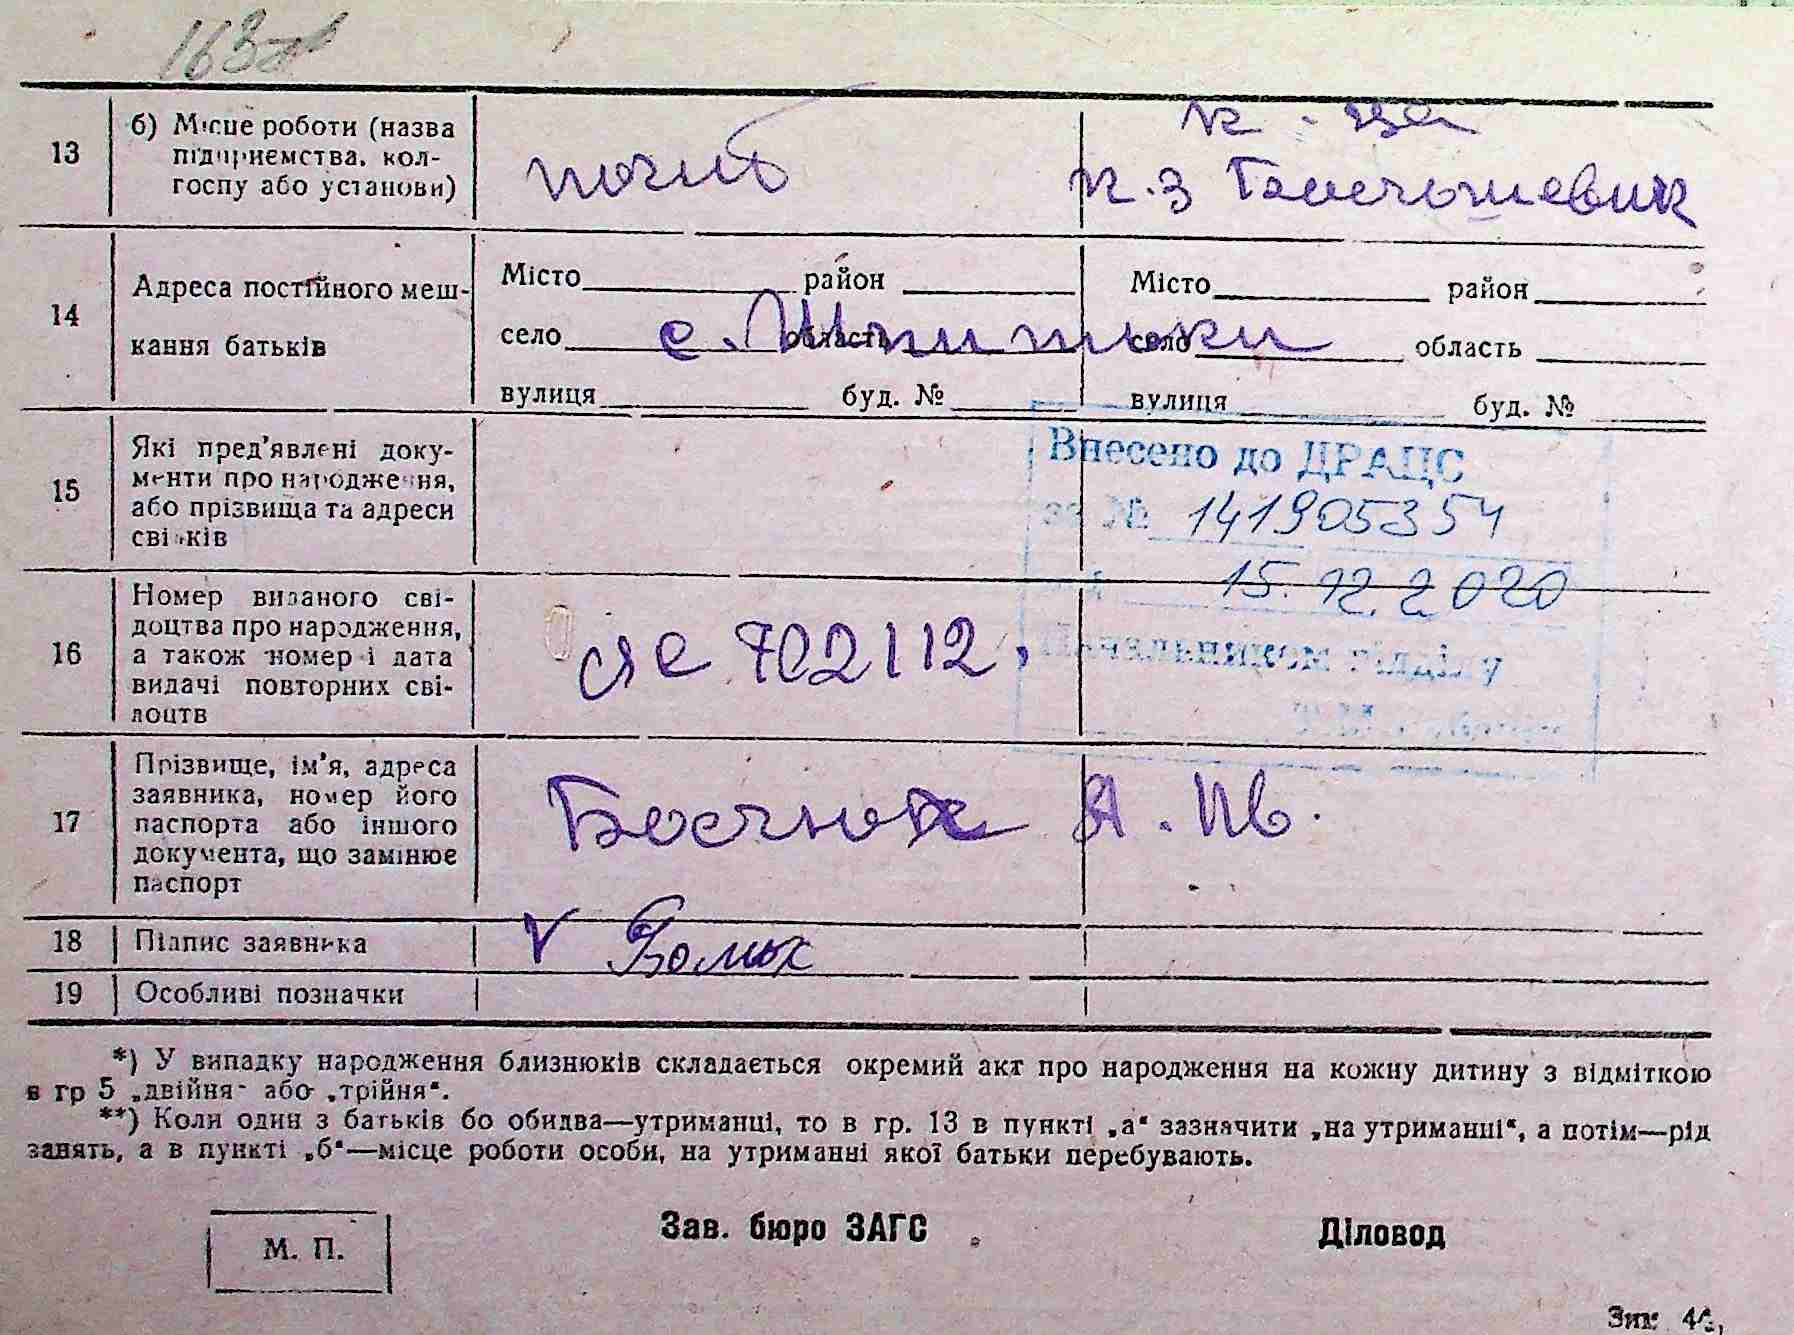 13
б) Місце роботи (назва
підприємства, кол-
госпу або установи)
к-з Більшовик
14
Адреса постійного меш-
кання батьків
Місто район
село область
вулиця буд. №
Місто район
село область
вулиця буд. №
с. Шпитьки
15
Які пред'явлені доку-
менти про народження,
або прізвища та адреси
свідків
Внесено до ДРАЦС
за № 141905354
15.12.2020
Начальником відділу
16
Номер виданого сві-
доцтва про народження,
а також номер і дата
видачі повторних сві-
доцтв
702112,
17
Прізвище, ім'я, адреса
заявника, номер його
паспорта або іншого
документа, що замінює
паспорт
А. Ів.
18
Підпис заявника
V
19
Особливі позначки
*) У випадку народження близнюків складається окремий акт про народження на кожну дитину з відміткою
в гр 5 „двійня" або „трійня".
**) Коли один з батьків бо обидва—утриманці, то в гр. 13 в пункті „а" зазначити „на утриманні", а потім—рід
занять, а в пункті „б"—місце роботи особи, на утриманні якої батьки перебувають.
М. П.
Зав. бюро ЗАГС
Діловод